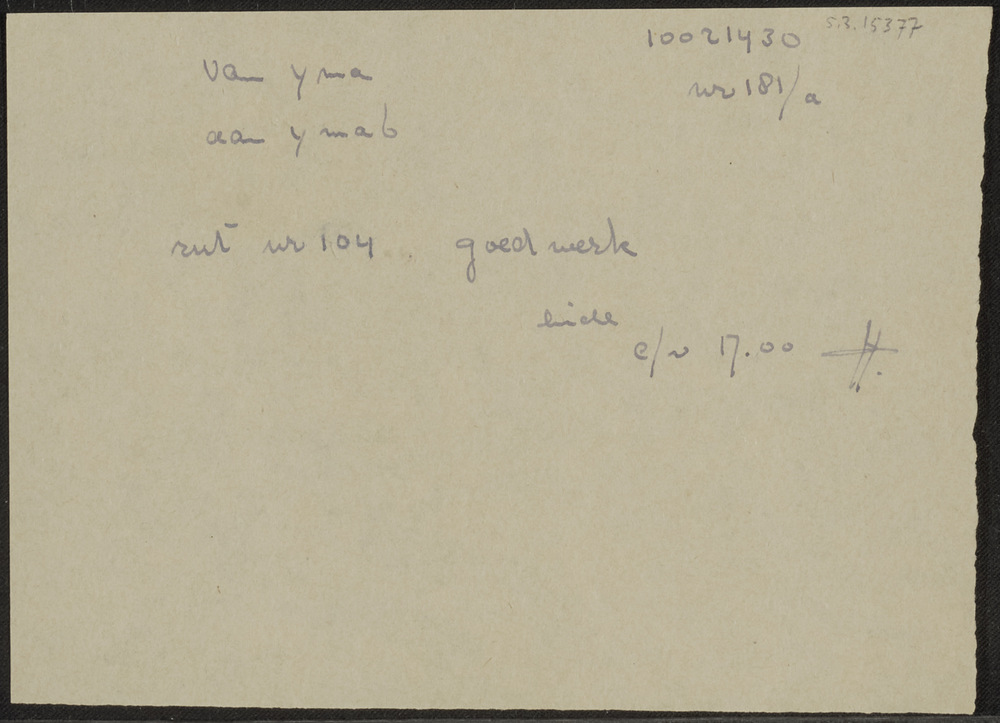 10021430 S.3.15377
van yma nr 181/a
aan ymab
rut nr 104 goed werk
einde
c/v 17.00 H.